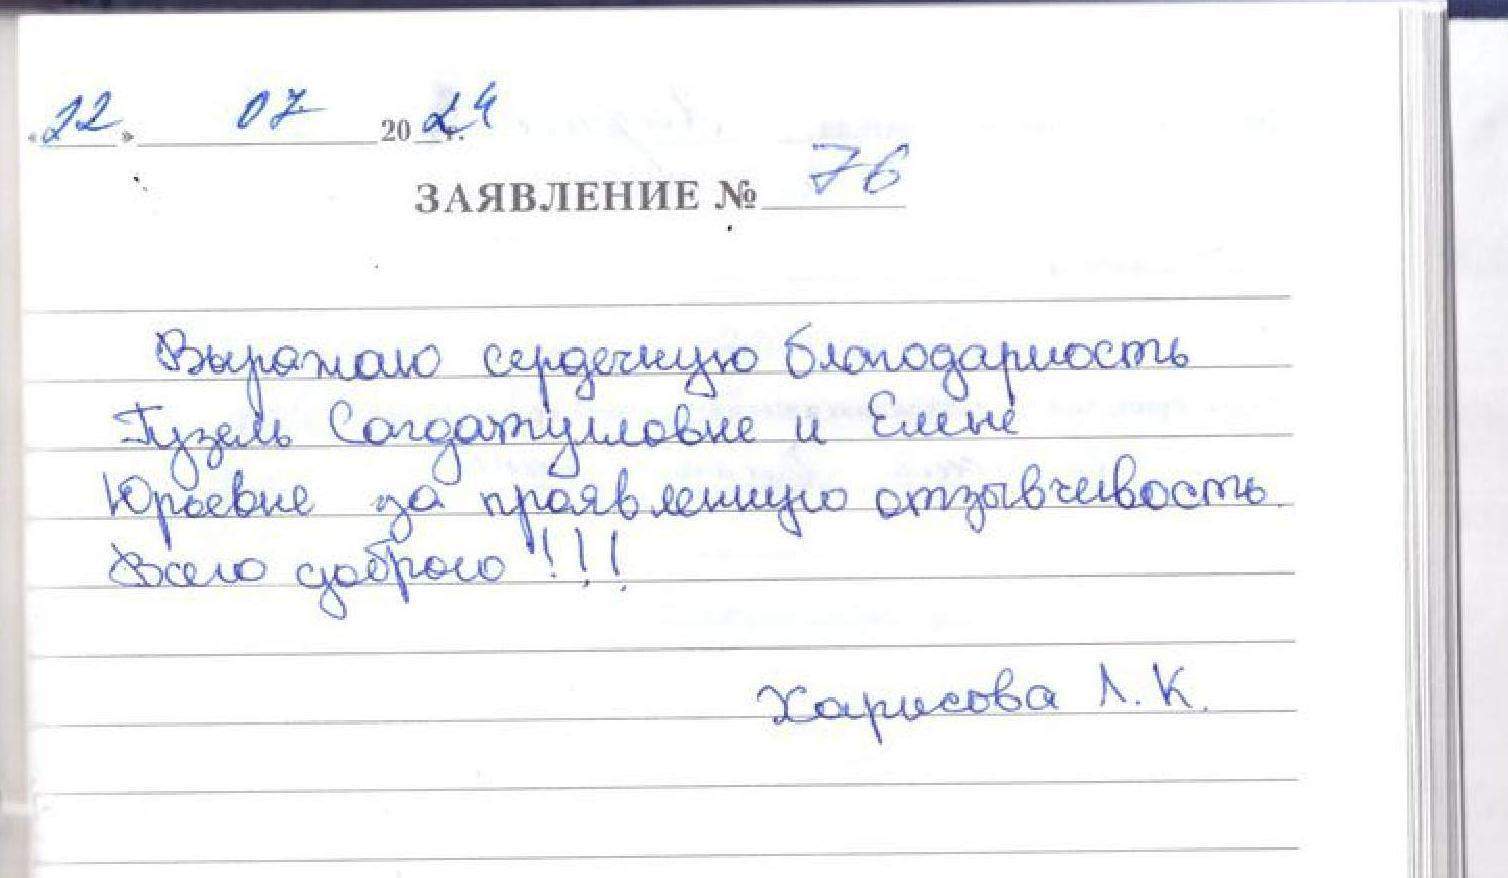 «22» 07 2024 г.
ЗАЯВЛЕНИЕ № 76
Выражаю сердечную благодарность
Гузель Сагдатулловне и Елене
Юрьевне за проявленную отзывчивость.
Всего доброго!!!
Харисова Л. К.